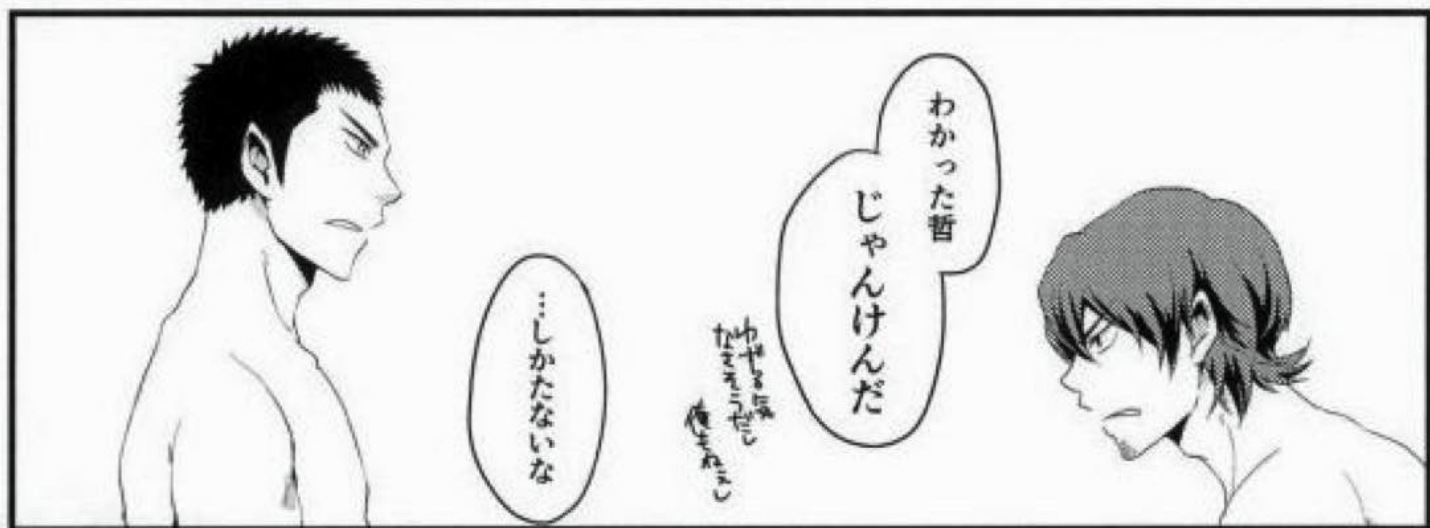 わかった哲
じゃんけんだ
ゆずる気
なさそうだし
俺もねぇし
…しかたないな